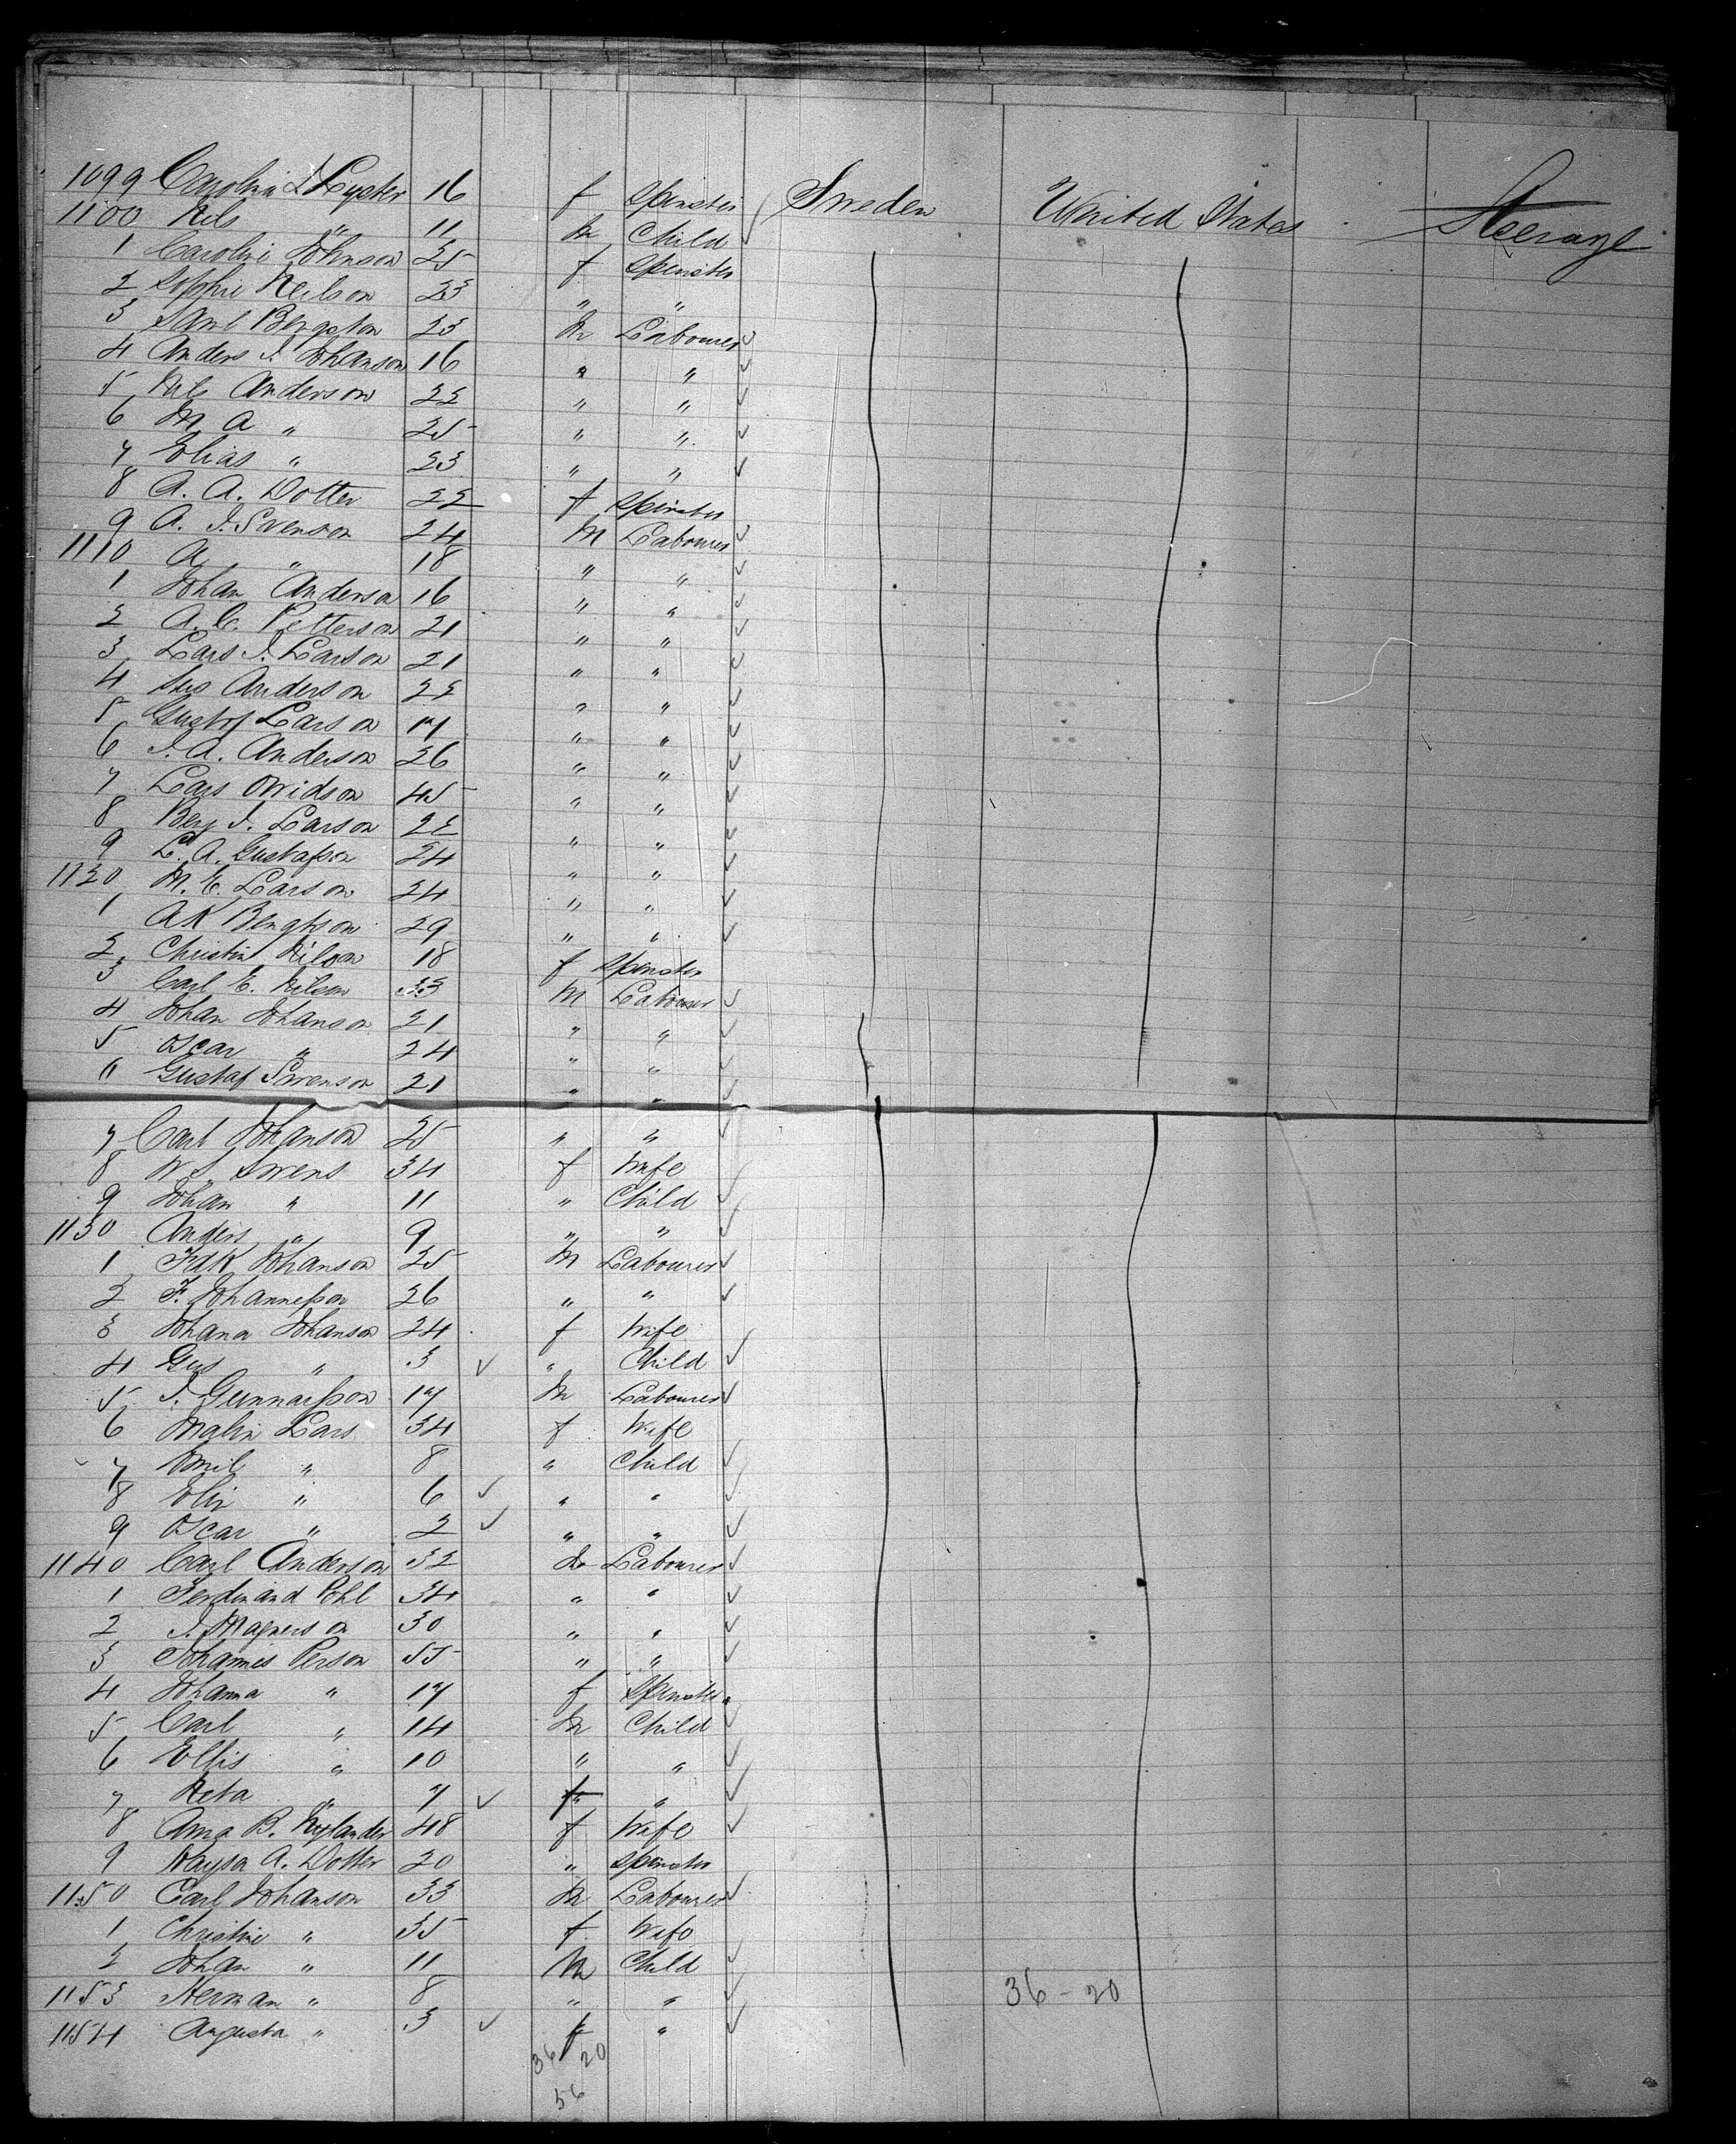 1099 Carolina L Lyster 16 f Spinster Sweden United States Steerage
1100 Nils " 11 M Child
1 Caroline Johnson 25 f Spinster
2 Sophie Neilson 23 " "
3 Saml Bergston 23 M Labourer
4 Anders J. Johanson 16 " "
5 Nils Anderson 22 " "
6 M A " 25 " "
7 Elias " 23 " "
8 A. A. Dotter 22 f Spinster
9 A. J. Svenson 24 M Labourer
1110 A " 18 " "
1 Johan Anderson 16 " "
2 A. C. Petterson 21 " "
3 Lars J. Larson 21 " "
4 Gus Anderson 22 " "
5 Gustof Larson 17 " "
6 J. A. Anderson 26 " "
7 Lars 45 " "
8 Benj J. Larson 22 " "
9 L. A. Gustafson 24 " "
1120 M. E. Larson 24 " "
1 A K Bengtson 29 " "
2 Christin Nilson 18 f Spinster
3 Carl E. Nilson 33 M Labourer
4 Johan Johanson 21 " "
5 Oscar " 24 " "
6 Gustaf Svenson 21 " "
7 Carl Johanson 25 " "
8 Swens 34 f Wife
9 Johan " 11 " Child
1130 Anders " 9 " "
1 Fdk Johanson 25 M Labourer
2 F. Johannesson 26 " "
3 Johana Johanson 24 f Wife
4 Gus " 3 " Child
5 J. Gunnarsson 17 M Labourer
6 Malin Lars 34 f Wife
7 Emil " 8 " Child
8 Elin " 6 " "
9 Oscar " 2 " "
1140 Carl Anderson 32 M Labourer
1 Ferdinand Pohl 34 " "
2 J. Magnerson 30 " "
3 Johannis Person 55 " "
4 Johanna " 17 f Spinster
5 Carl " 14 M Child
6 Ellis " 10 " "
7 Neta " 7 f "
8 Anna B. Nylander 48 f Wife
9 Kaysa A. Dotter 20 " Spinster
1150 Carl Johanson 33 M Labourer
1 Christine " 35 f Wife
2 Johan " 11 M Child
1153 Herman " 8 " " 36 - 20
1154 Augusta " 3 f "
36 20
56